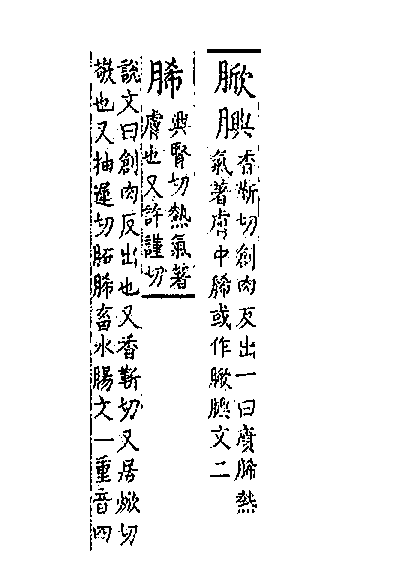 香靳切創肉反出一曰膚脪熱
氣著膚中脪或作文二
脪
興腎切熱氣著
膚也又許謹切
說文曰創肉反出也又香靳切又居焮切
也又抽遲切脪畜水腸文一重音四